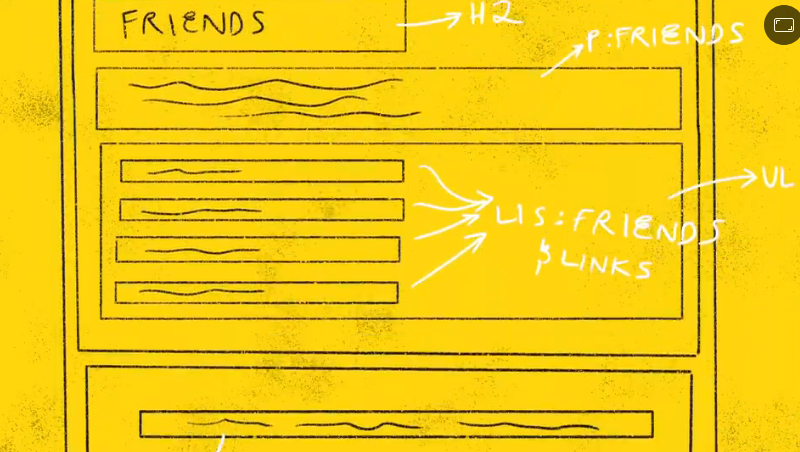 FRIENDS
H2
P:FRIENDS
UL
LIS:FRIENDS
& LINKS